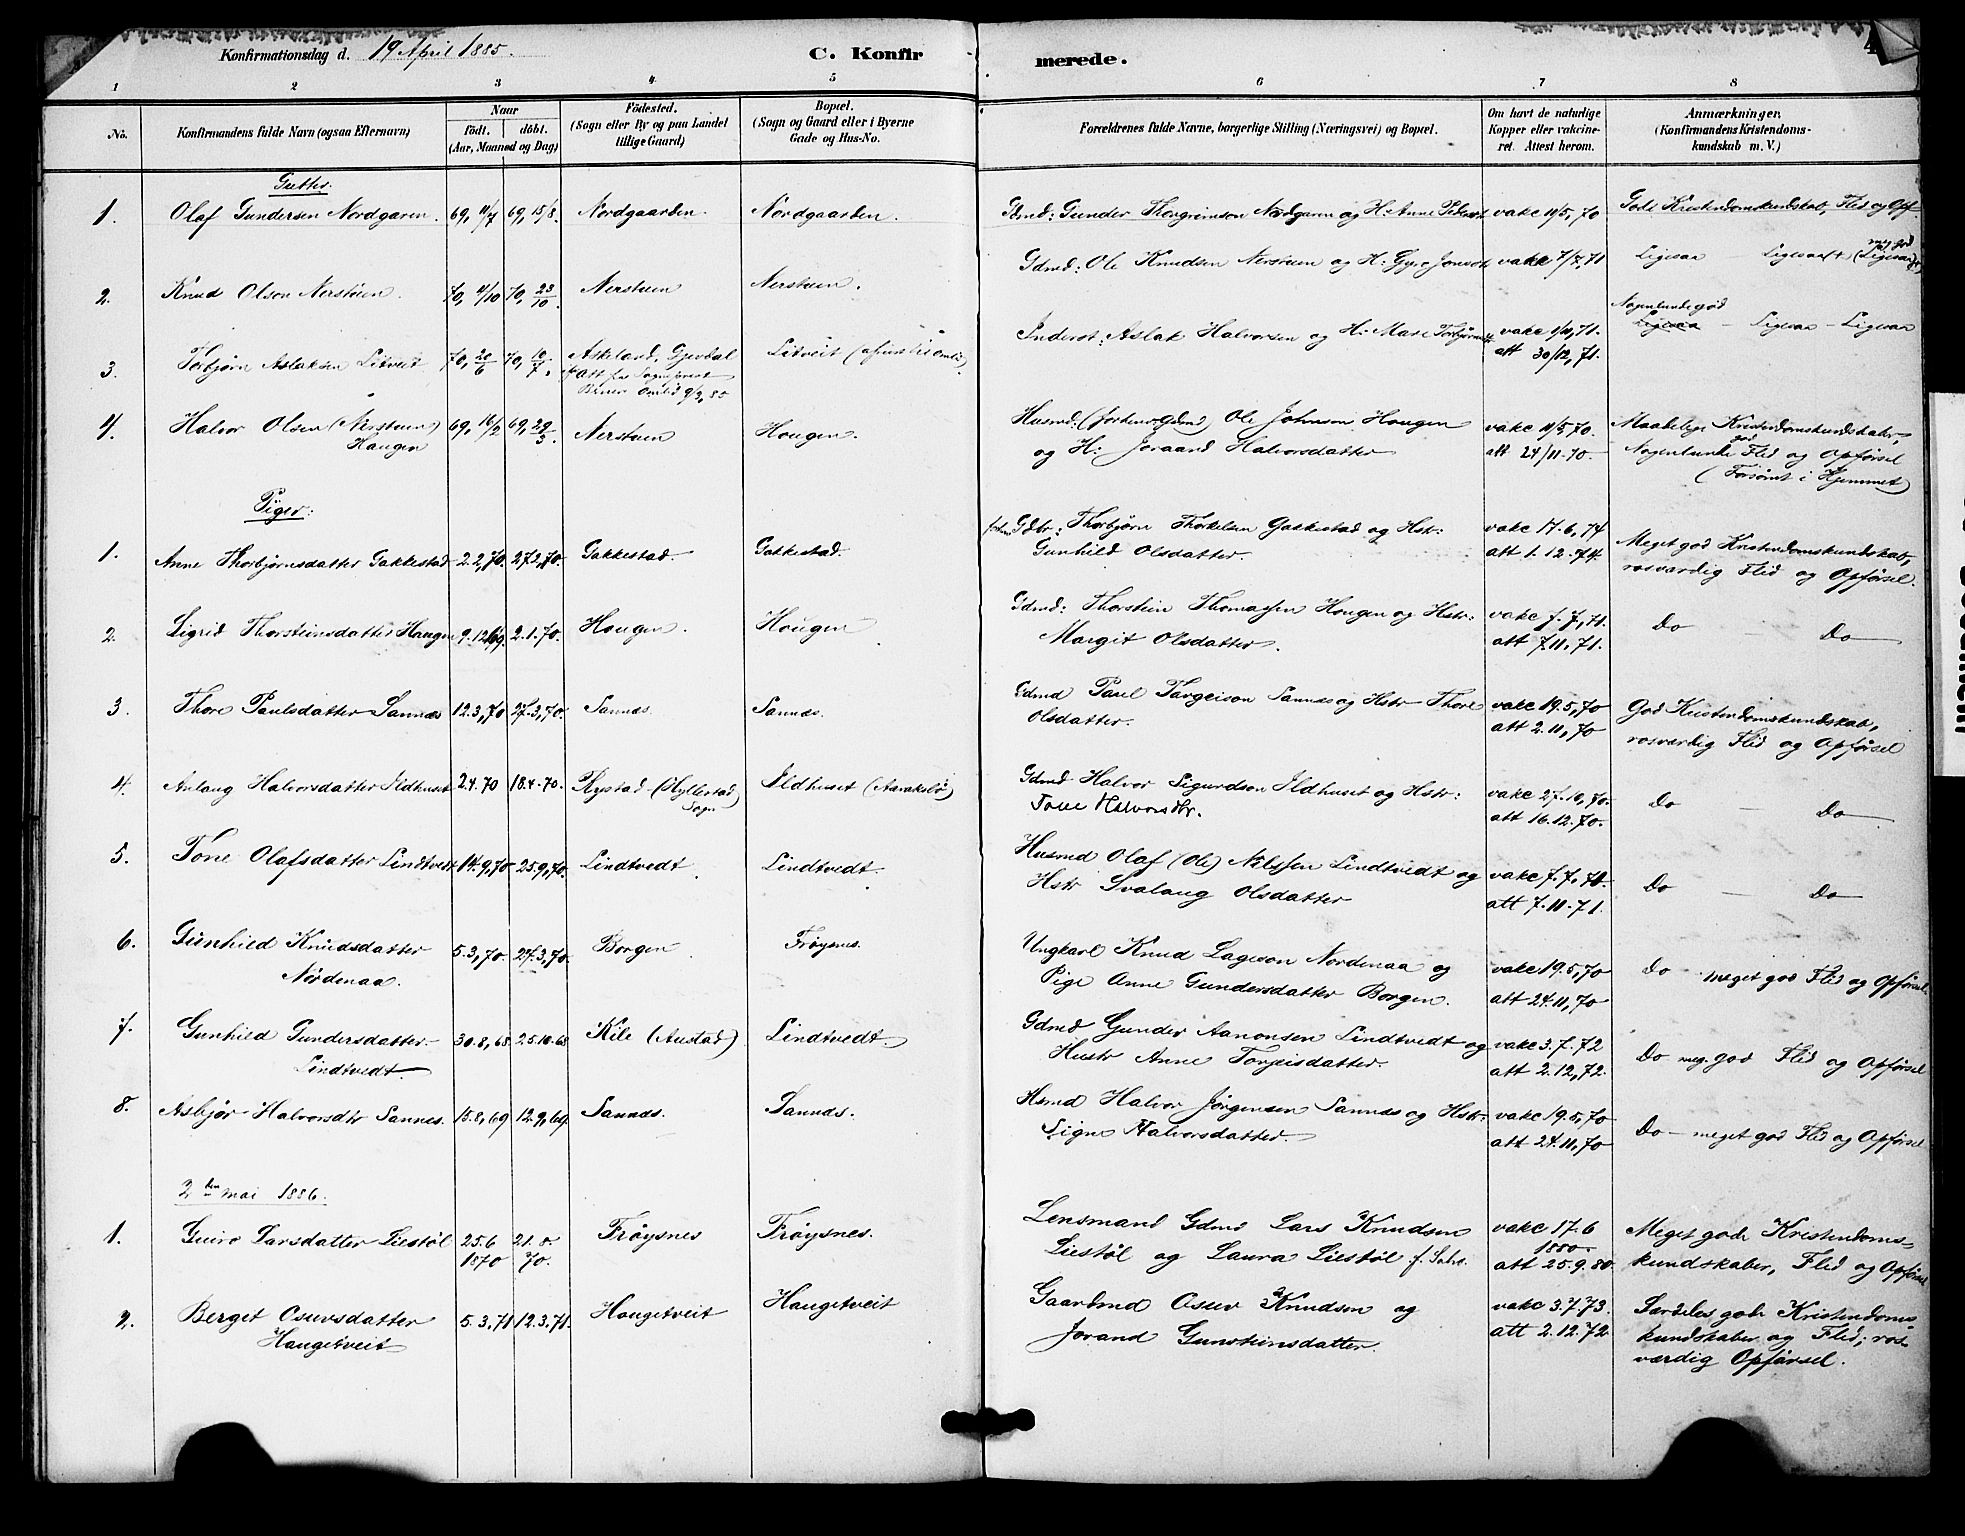 Konfirmationsdag d. 19 April 1885.
C. Konfirmerede.
1 2 3 4 5 6 7 8
No.
Konfirmandens fulde Navn (ogsaa Efternavn)
Naar
födt. döbt.
(Aar, Maaned og Dag)
Födested.
(Sogn eller By og paa Landet
tillige Gaard)
Bopæl.
(Sogn og Gaard eller i Byerne
Gade og Hus-No.
Forældrenes fulde Navne, borgerlige Stilling (Næringsvei) og Bopæl.
Om havt de naturlige
Kopper eller vakcine-
ret. Attest herom.
Anmærkninger.
(Konfirmandens Kristendoms-
kundskab m. V.)
Gutter.
1. Olaf Gundersen Nordgaren. 69, 11/7 69, 15/8. Nordgaarden. Nordgaarden. Gdmd: Gunder Thorgrimson Nordgaren og H: Anne vakc 11/5, 70 Gode Kristendomskundskab, Flid og Opf
2. Knud Olson Nerstuen. 70, 4/10 70, 23/10 Nerstuen Nerstuen. Gdmd: Ole Knudsen Nerstuen og H: Gyro vakc 7/7, 71 Ligesaa Ligesaa
3. Torbjørn Aslaksen Litveit 70, 20/6 70, 10/7. Askeland, Gjevdal
Att fra Sogneprest
Omlid 9/2, 85
Litveit
Inderst: Aslak Halvorsen og H: Mare vakc 1/11, 71.
att 30/12, 71.
Nogenlunde god
Ligesaa - Ligesaa - Ligesaa
4. Halvor Olsen (Nerstuen)
Haugen
69, 16/2 69, 29/3 Nerstuen Hougen.
Husmd: Ole Johnson Hougen
og H: Joraand Halvorsdatter
vakc 11/5, 70.
att 24/11-70.
Maadelige Kristendomskundskaber,
Nogenlunde god Flid og Opførsel
(Forsømt i Hjemmet)
Piger:
1. Anne Thorbjørnsdatter Gakkestad 2.2, 70 27.2, 70. Gakkestad. Gakkestad.
Gdbr: Thorbjørn Thorkelsen Gakkestad og Hstr:
Gunhild Olsdatter.
vakc 17.6, 74
att 1.12.74.
Meget god Kristendomskundskab,
rosværdig Flid og Opførsel.
2. Sigrid Thorsteinsdatter Haugen 9.12, 69. 2.1.70. Hougen. Hougen
Gdmd: Thorstein Thomassen Hougen og Hstr:
Margit Olsdatter.
vakc 7.7, 71.
att 7.11, 71.
Do Do
3. Thore Paulsdatter Sannes 12.3, 70 27.3, 70. Sannes. Sannes.
Gdmd Paul Targeison Sannes og Hstr Thore
Olsdatter.
vakc 19.5, 70
att 2.11, 70
God Kristendomskundskab,
rosværdig Flid og Opførsel
4. Anlaug Halvorsdatter Ildhuset 2.4.70 18.4-70. Rystad (Hyllestad
Sogn)
Ildhuset
Gdmd Halvor Sigurdson Ildhuset og Hstr:
Tone Halvorsdtr.
vakc 27.10, 70.
att 16.12.70.
Do - Do
5. Tone Olafsdatter Lindtvedt 14.9, 70 25.9, 70. Lindtvedt Lindtvedt
Husmd Olaf (Ole) Nilssen Lindtvedt og
Hstr Svalaug Olsdatter
vakc 7.7, 71.
att 7.11-71.
Do - Do
6. Gunhild Knudsdatter
Nordenaa.
5.3, 70. 27.3, 70. Borgen Frøysnes.
Ungkarl Knud Lageson Nordenaa og
Pige Anne Gundersdatter Borgen.
vakc 19.5, 70
att 24.11, 70
Do meget god Flid og Opførsel.
7. Gunhild Gundersdatter
Lindtvedt.
30.8, 68 25.10.68 Kile (Austad) Lindtvedt.
Gdmd Gunder Aanonsen Lindtvedt og
Hustr Anne Torgeisdatter.
vakc 3.7.72
att 2.12, 72.
Do meg. god Flid og Opførsel
8. Asbjør Halvorsdtr Sannes. 15.8, 69 12.9, 69. Sannes. Sannes.
Hsmd Halvor Jørgensen Sannes og Hstr:
Signe Halvorsdatter.
vakc 19.5, 70
att 24.11, 70
Do - meget god Flid og Opførsel
2den mai 1886.
1. Guro Larsdatter Liestøl 25.6
1870
21.8.
70.
Frøysnes Frøysnes.
Lensmand Gdmd Lars Knudsen
Liestøl og Laura Liestøl
vakc 17.6
1880.
att 25.9.80
Meget gode Kristendoms-
kundskaber, Flid og Opførsel
2. Berget Osuvsdatter
Haugetveit
5.3, 71 12.3.71. Haugetveit Haugetveit
Gaardmd Osuv Knudsen og
Jorand Gunsteinsdatter.
vakc 3.7.73.
att 2.12.72
Særdeles gode Kristendoms-
kundskaber og Flid; ros-
værdig Opførsel.